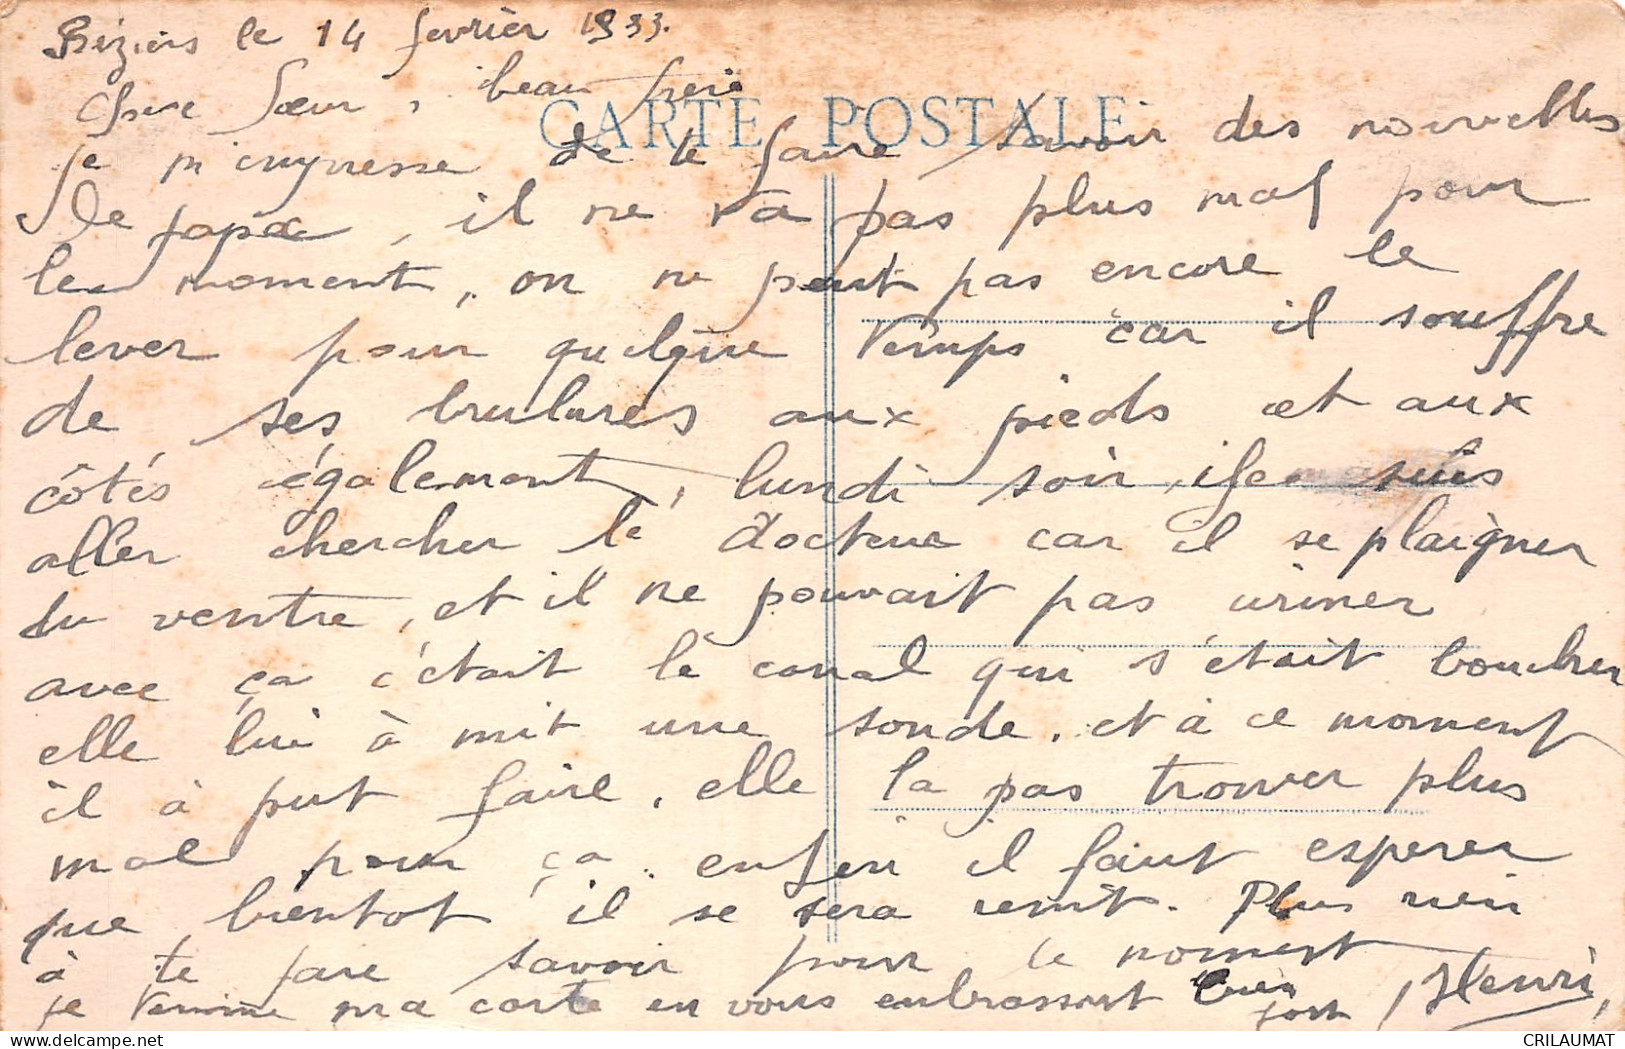 Béziers le 14 fevrièr 1933.
Chere Sœur, beau frere
CARTE POSTALE
je m'empresse de te faire savoir des nouvelles
de papa, il ne va pas plus mal pour
le moment, on ne peut pas encore le
lever pour quelque temps car il souffre
de ses brulures aux pieds et aux
côtés également, lundi soir, je suis
aller chercher le docteur car il se plaigner
du ventre, et il ne pouvait pas uriner
avec ça c'etait le canal qui s'était boucher
elle lui à mit une sonde. et à ce moment
il à put faire, elle la pas trouver plus
mal pour ça. enfin il faut esperer
que bientot il se sera remit. Plus rien
à te faire savoir pour le moment
je termine ma carte en vous enbrassant bien
fort, Henri,
CRILAUMAT